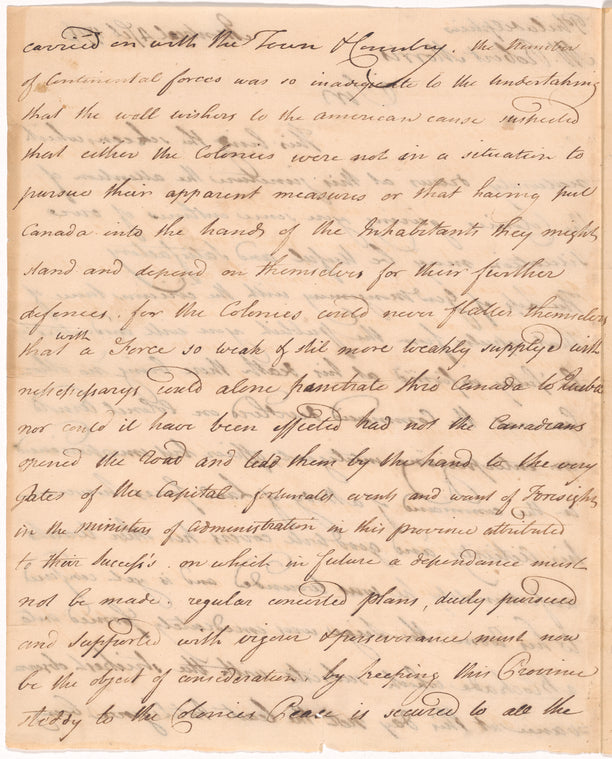 carried on with the Town & Country. the Number
of Continental forces was so inadiquate to the undertaking
that the well wishers to the american cause suspected
that either the Colonies were not in a situation to
pursue their apparent measures or that having put
Canada into the hands of the Inhabitants they might
stand and depend on themselves for their further
defences. for the Colonies could never flatter themselves
that with a Force so weak & stil more weakly supplyed with
nessessarys could alone penetrate thro Canada to Quebec
nor could it have been effected had not the Canadians
opened the road and lead them by the hand to the very
gates of the Capital. fortunate events and want of Foresight
in the ministers of administration in this province attributed
to their success's. on which in future a dependance must
not be made. regular concerted plans, duely pursued
and supported with vigour & perseverance must now
be the object of consideration. by keeping this Province
steddy to the Colonies Peace is secured to all the